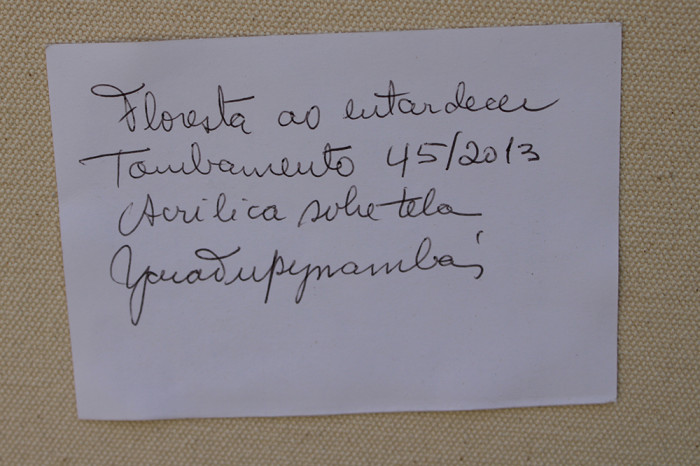 Floresta ao entardecer
Tombamento 45/2013
Acrilica sobre tela